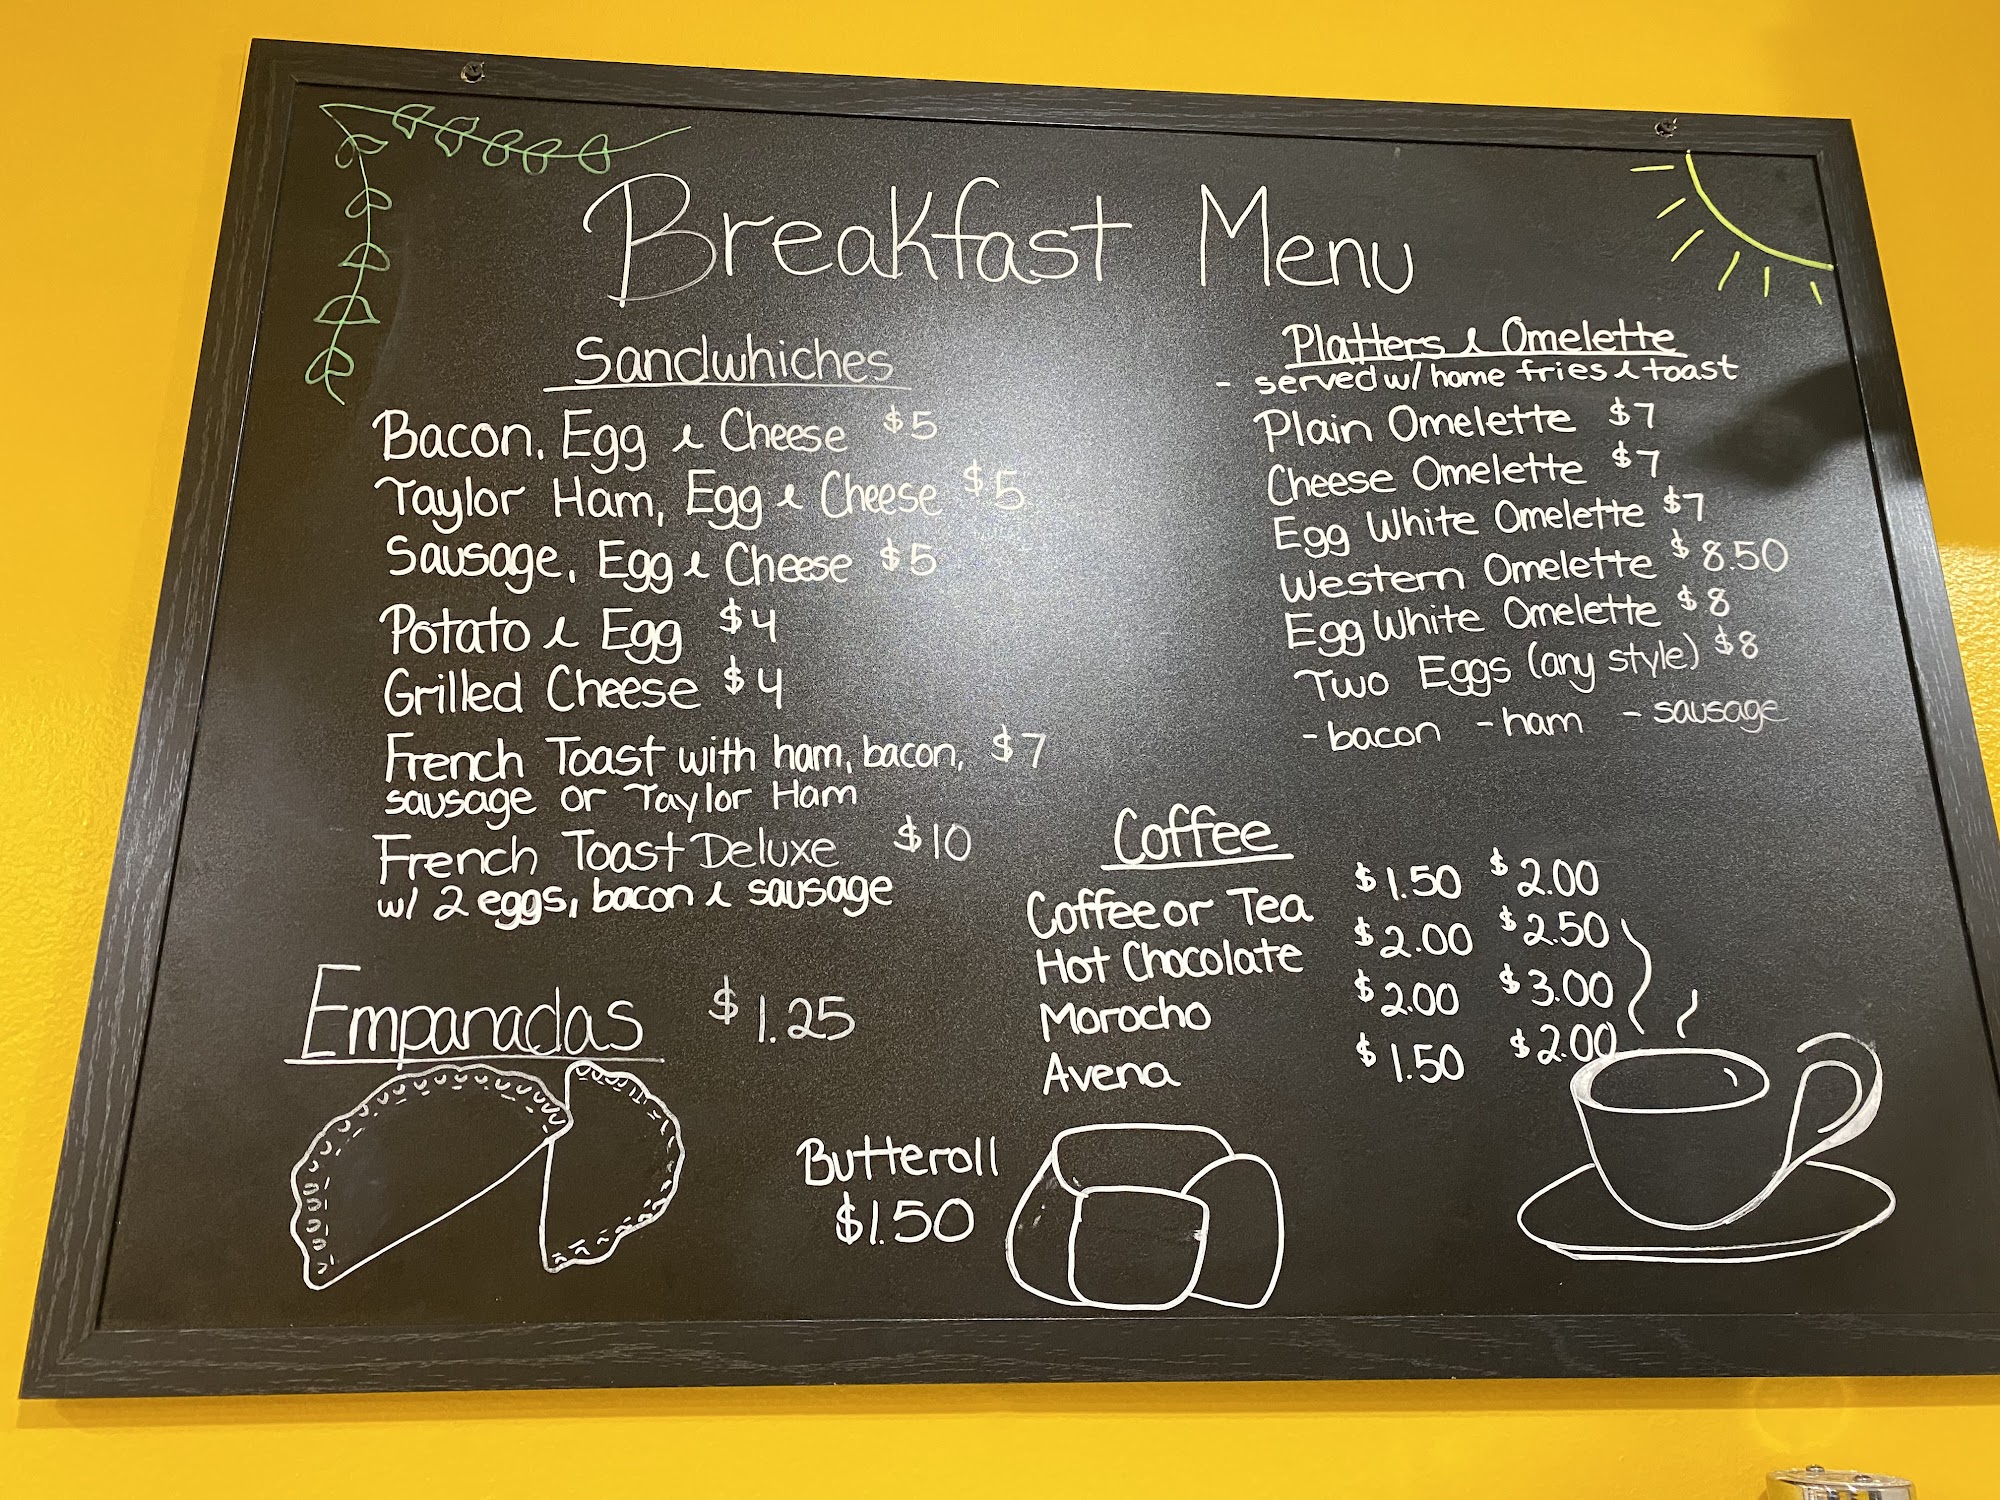 Breakfast Menu
Sandwhiches
Bacon, Egg & Cheese $5
Taylor Ham, Egg & Cheese $5
Sausage, Egg & Cheese $5
Potato & Egg $4
Grilled Cheese $4
French Toast with ham, bacon, $7
sausage or Taylor Ham
French Toast Deluxe $10
w/ 2 eggs, bacon & sausage
Empanadas $1.25
Platters & Omelette
- served w/ home fries & toast
Plain Omelette $7
Cheese Omelette $7
Egg White Omelette $7
Western Omelette $8.50
Egg White Omelette $8
Two Eggs (any style) $8
- bacon - ham - sausage
Coffee
Coffee or Tea $1.50 $2.00
Hot Chocolate $2.00 $2.50
Morocho $2.00 $3.00
Avena $1.50 $2.00
Butteroll
$1.50